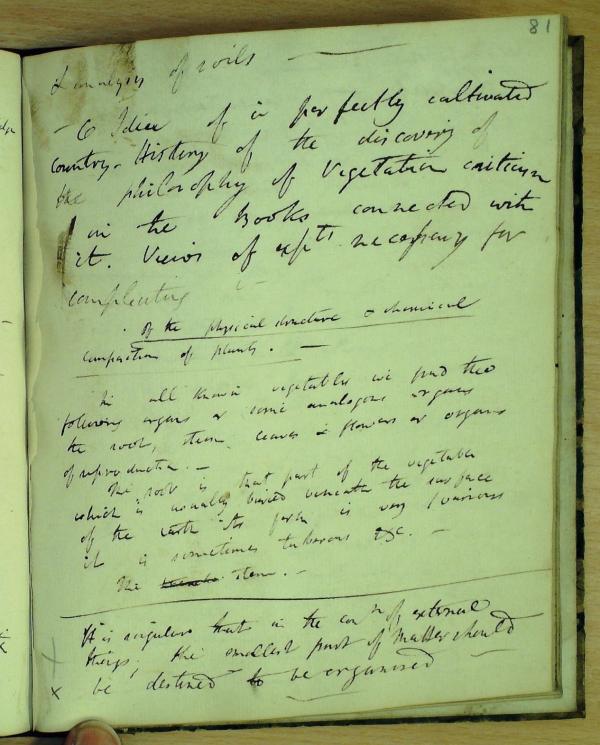 81
& analysis of soils —
— 6 Idea of a perfectly cultivated
country. History of the discovery of
the philosophy of Vegetation criticism
on the Books connected with
it. Views of expts necessary for
completing
Of the physical structure & chemical
composition of plants. —
In all known vegetables we find the
following organs or some analogous organs
the root, stem leaves & flowers or organs
of reproduction. —
The root is that part of the vegetable
which is usually buried beneath the surface
of the earth its form is very various
it is sometimes tuberous &c. —
The stem. —
It is singular that in the of external
things, the smallest part of matter should
x be destined to be organised